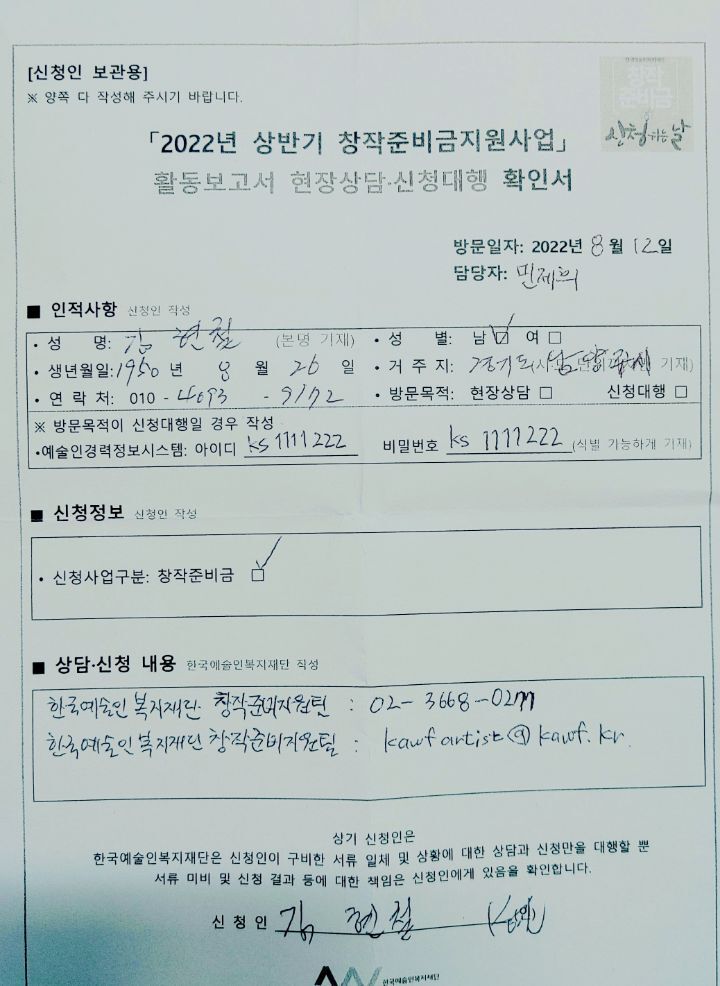 [신청인 보관용]
※ 양쪽 다 작성해 주시기 바랍니다.
창작
준비금
신청하는 날
「2022년 상반기 창작준비금지원사업」
활동보고서 현장상담·신청대행 확인서
방문일자: 2022년 8월 12일
담당자:
■ 인적사항 신청인 작성
• 성 명: 김현철 (본명 기재) • 성 별: 남 ☑ 여 □
• 생년월일: 1950 년 8 월 26 일 • 거 주 지: 경기도 남양주시 기재)
• 연 락 처: 010 - 4093 - 9172 • 방문목적: 현장상담 □ 신청대행 □
※ 방문목적이 신청대행일 경우 작성
•예술인경력정보시스템: 아이디 ks1111222 비밀번호 ks1111222 (식별 가능하게 기재)
■ 신청정보 신청인 작성
• 신청사업구분: 창작준비금 ☑
■ 상담·신청 내용 한국예술인복지재단 작성
한국예술인복지재단 창작준비지원팀 : 02-3668-02
한국예술인복지재단 창작준비지원팀 : kawfartist@kawf.kr.
상기 신청인은
한국예술인복지재단은 신청인이 구비한 서류 일체 및 상황에 대한 상담과 신청만을 대행할 뿐
서류 미비 및 신청 결과 등에 대한 책임은 신청인에게 있음을 확인합니다.
신 청 인 김현철
한국예술인복지재단